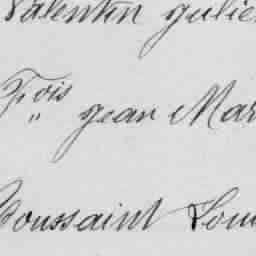 Valentin Julie
Fois " Jean Mar
Toussaint Loui